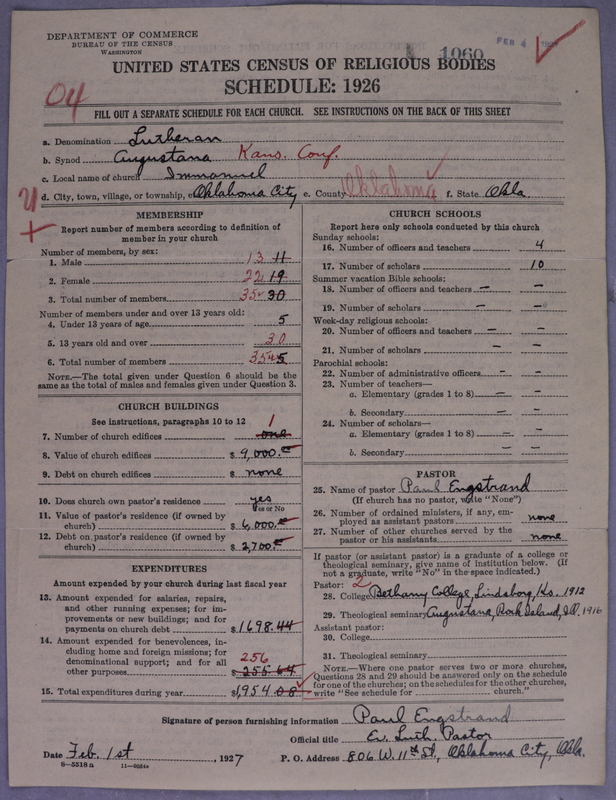 DEPARTMENT OF COMMERCE
BUREAU OF THE CENSUS
WASHINGTON
1060
FEB 4 1927
UNITED STATES CENSUS OF RELIGIOUS BODIES
SCHEDULE: 1926
04
FILL OUT A SEPARATE SCHEDULE FOR EACH CHURCH. SEE INSTRUCTIONS ON THE BACK OF THIS SHEET
a. Denomination Lutheran
b. Synod Augustana Kans. Conf.
c. Local name of church Immanuel
d. City, town, village, or township, Oklahoma City e. County Oklahoma f. State Okla.
MEMBERSHIP
Report number of members according to definition of
member in your church
Number of members, by sex:
1. Male 13 11
2. Female 22 19
3. Total number of members 35 30
Number of members under and over 13 years old:
4. Under 13 years of age 5
5. 13 years old and over 30
6. Total number of members 35
NOTE.—The total given under Question 6 should be the
same as the total of males and females given under Question 3.
CHURCH BUILDINGS
See instructions, paragraphs 10 to 12
7. Number of church edifices 1 one
8. Value of church edifices $ 9,000.
9. Debt on church edifices $ none
10. Does church own pastor's residence yes
Yes or No
11. Value of pastor's residence (if owned by
church) $ 6,000.
12. Debt on pastor's residence (if owned by
church) $ 2,700.
EXPENDITURES
Amount expended by your church during last fiscal year
13. Amount expended for salaries, repairs,
and other running expenses; for im-
provements or new buildings; and for
payments on church debt $ 1698.44
14. Amount expended for benevolences, in-
cluding home and foreign missions; for
denominational support; and for all 256
other purposes $ 255.64
15. Total expenditures during year $ 1,954 08
CHURCH SCHOOLS
Report here only schools conducted by this church
Sunday schools:
16. Number of officers and teachers 4
17. Number of scholars 10
Summer vacation Bible schools:
18. Number of officers and teachers – –
19. Number of scholars – –
Week-day religious schools:
20. Number of officers and teachers – –
21. Number of scholars – –
Parochial schools:
22. Number of administrative officers – –
23. Number of teachers—
a. Elementary (grades 1 to 8) – –
b. Secondary – –
24. Number of scholars—
a. Elementary (grades 1 to 8) – –
b. Secondary – –
PASTOR
25. Name of pastor Paul Engstrand
(If church has no pastor, write "None")
26. Number of ordained ministers, if any, em-
ployed as assistant pastors none
27. Number of other churches served by the
pastor or his assistants none
If pastor (or assistant pastor) is a graduate of a college or
theological seminary, give name of institution below. (If
not a graduate, write "No" in the space indicated.)
Pastor: 2
28. College Bethany College, Lindsborg, Ks. 1912
29. Theological seminary Augustana, Rock Island, Ill. 1916
Assistant pastor:
30. College
31. Theological seminary
NOTE.—Where one pastor serves two or more churches,
Questions 28 and 29 should be answered only on the schedule
for one of the churches; on the schedules for the other churches,
write "See schedule for church."
Signature of person furnishing information Paul Engstrand
Official title Ev. Luth. Pastor
Date Feb. 1st, 1927 P. O. Address 806 W. 11th St., Oklahoma City, Okla.
8-5518a 11-9024a